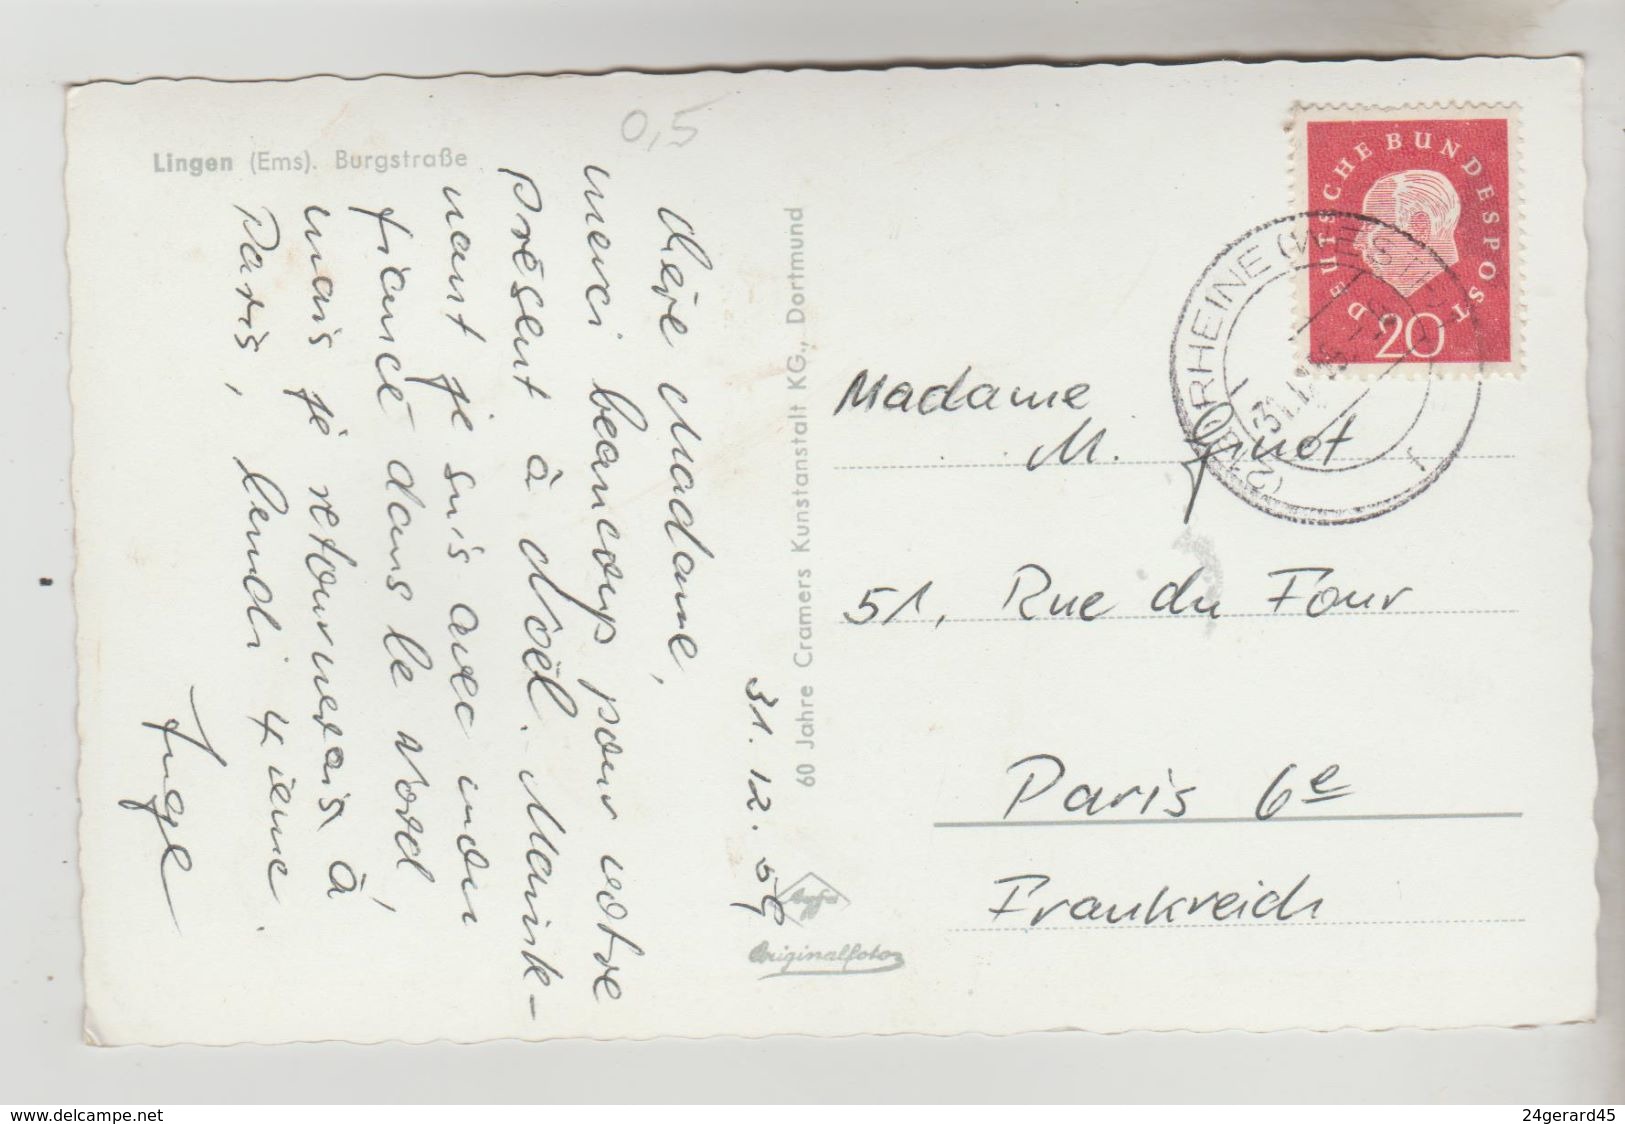 0,5
Lingen (Ems). Burgstraße
31. 12. 59
Chère Madame,
merci beaucoup pour votre
présent à Noël. Maint-
nant je suis avec mon
fiancé dans le Nord,
mais je retournerais à
Paris, lundi 4 ième.
Inge
60 Jahre Cramers Kunstanstalt KG., Dortmund
Agfa
Originalfoto
DEUTSCHE BUNDESPOST
20
RHEINE (WESTF)
Madame
M. Ginot
51, Rue du Four
Paris 6e
Frankreich
www.delcampe.net
24gerard45